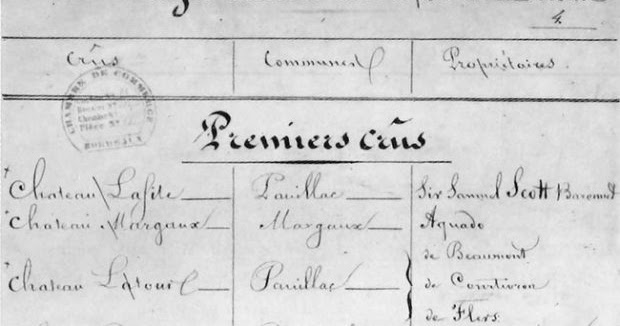 4.
Crûs Communes Propriétaires
CHAMBRE DE COMMERCE
BORDEAUX
Premiers crûs
Chateau Lafite Pauillac Sir Samuel Scott Baronnet
Chateau Margaux Margaux Aguado
de Beaumont
Chateau Latour Pauillac de Courtivron
de Flers